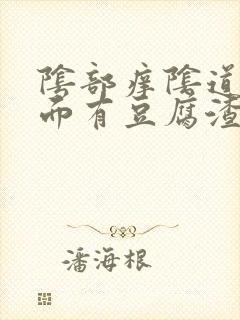 陰部痒陰道
而有豆腐渣
潘海根